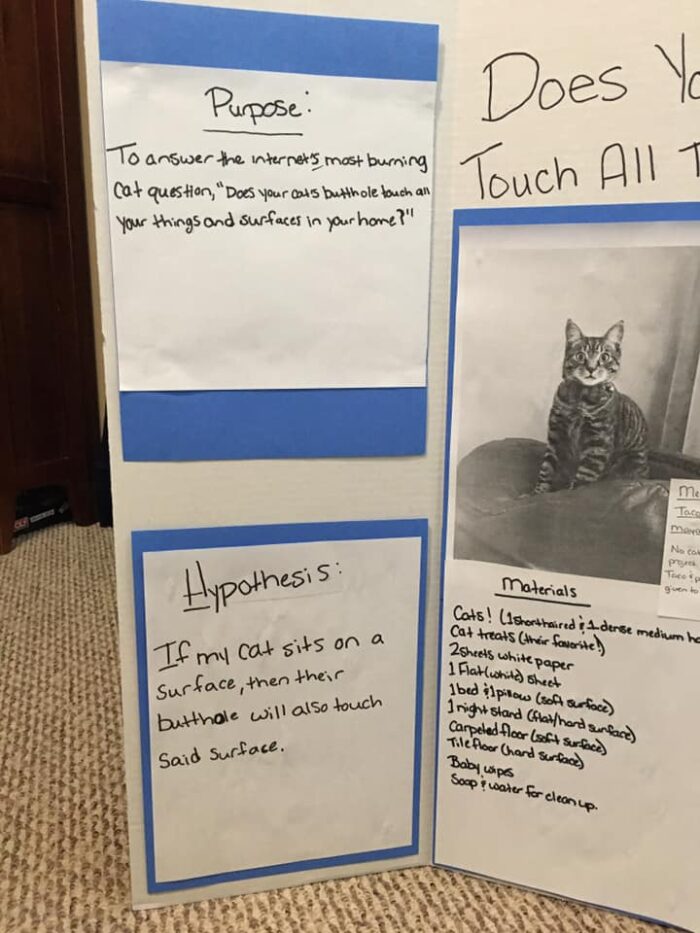 Purpose:
To answer the internet's most burning
Cat question, "Does your cats butthole touch all
your things and surfaces in your home?"
Hypothesis:
If my cat sits on a
surface, then their
butthole will also touch
said surface.
Does Yo
Touch All T
Me
Taco
No cat
project
Taco &
given to
Materials
Cats! (1 shorthaired & 1 dense medium ha
Cat treats (their favorite!)
2 sheets white paper
1 Flat (white) sheet
1 bed & 1 pillow (soft surface)
1 night stand (flat/hard surface)
Carpeted floor (soft surface)
Tile floor (hard surface)
Baby wipes
Soap & water for clean up.